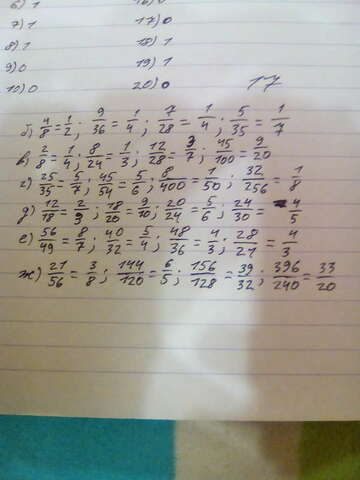 6) 1
16) 0
7) 1
17) 0
8) 1
18) 1
9) 0
19) 1
10) 0
20) 0
17
б) 4/8 = 1/2 ; 9/36 = 1/4 ; 7/28 = 1/4 ; 5/35 = 1/7
в) 2/8 = 1/4 ; 8/24 = 1/3 ; 12/28 = 3/7 ; 45/100 = 9/20
г) 25/35 = 5/7 ; 45/54 = 5/6 ; 8/400 = 1/50 ; 32/256 = 1/8
д) 12/18 = 2/3 ; 18/20 = 9/10 ; 20/24 = 5/6 ; 24/30 = 4/5
е) 56/49 = 8/7 ; 40/32 = 5/4 ; 48/36 = 4/3 ; 28/21 = 4/3
ж) 21/56 = 3/8 ; 144/120 = 6/5 ; 156/128 = 39/32 ; 396/240 = 33/20